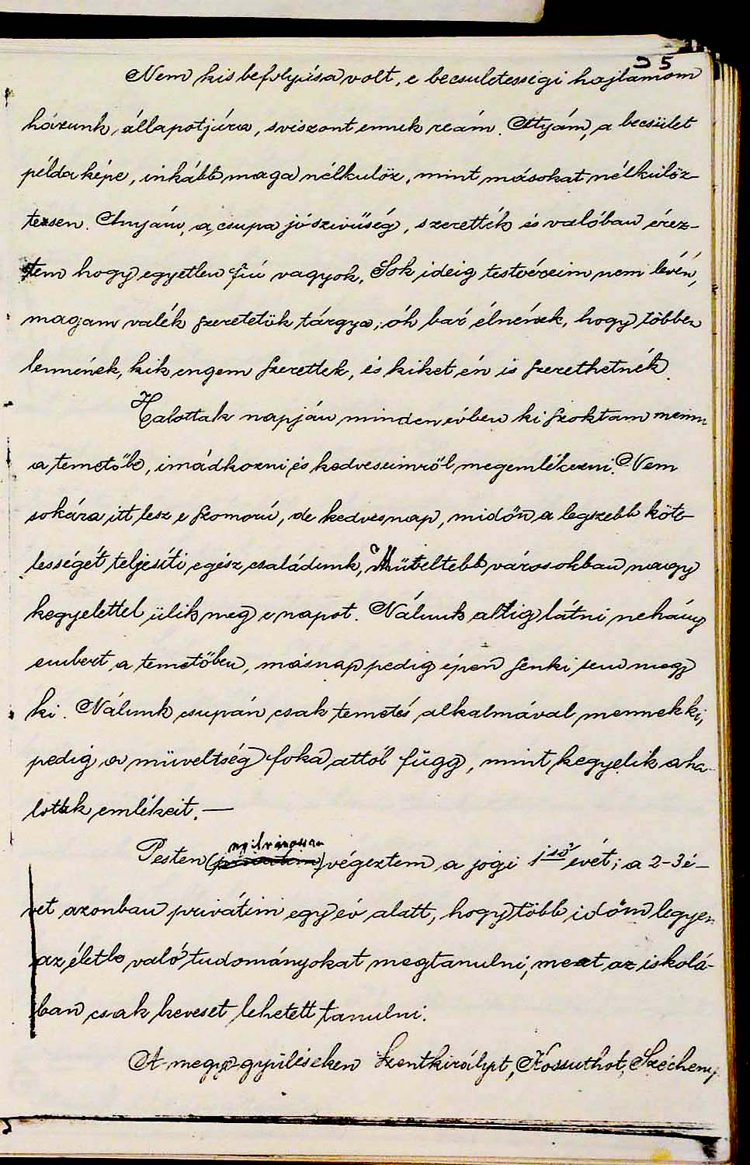 35
Nem kis befolyása volt, e becsületességi hajlamom
házunk állapotjára, s viszont ennek reám. Atyám, a becsület
példaképe, inkább maga nélkülöz, mint másokat nélkülöz-
tessen. Anyám, a csupa jószívűség, szerették és valóban érez-
tem hogy egyetlen fiú vagyok. Sok ideig testvéreim nem lévén,
magam valék szeretetük tárgya; óh bár élnének, hogy többen
lennének, kik engem szerettek, és kiket én is szerethetnék.
Halottak napján minden évben ki szoktam menni
a temetőbe, imádkozni és kedveseimről megemlékezni. Nem
sokára itt lesz e szomorú, de kedves nap, midőn a legszebb köte-
lességét teljesíti egész családunk. Műveltebb városokban nagy
kegyelettel ülik meg e napot. Nálunk alig látni nehány
embert a temetőben, másnap pedig épen senki sem megy
ki. Nálunk csupán csak temetés alkalmával mennek ki,
pedig a műveltség foka attól függ, mint kegyelik a ha-
lottak emlékeit. —
nyilvánosan
Pesten (privatim) végeztem a jogi 1ső évét; a 2-3 é-
vet azonban privátim egy év alatt, hogy több időm legyen
az életbe való tudományokat megtanulni, mert az iskolá-
ban csak keveset lehetett tanulni.
A megyegyűléseken Szentkirályit, Kossuthot, Szécheny